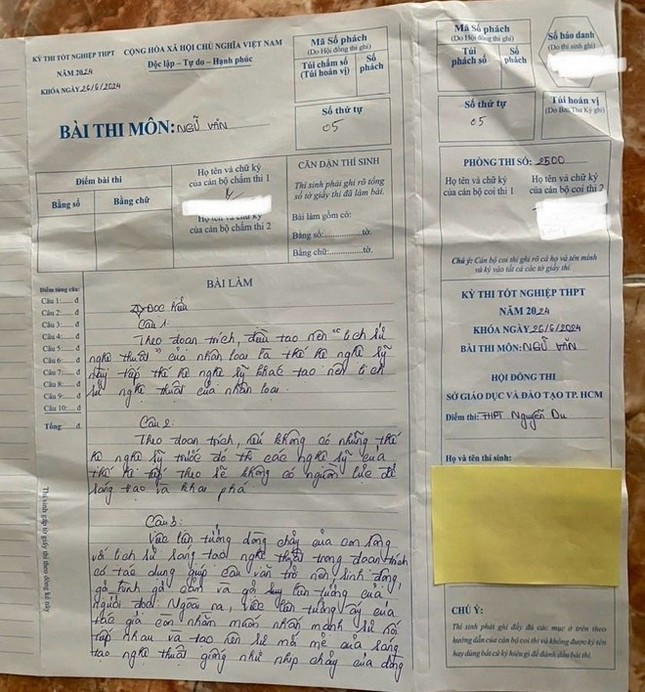 KỲ THI TỐT NGHIỆP THPT
NĂM 2024
KHÓA NGÀY 26/6/2024
CỘNG HÒA XÃ HỘI CHỦ NGHĨA VIỆT NAM
Độc lập – Tự do – Hạnh phúc
BÀI THI MÔN: NGỮ VĂN
Mã Số phách
(Do Hội đồng thi ghi)
Túi chấm số
(Túi hoán vị)
Số
phách
Số thứ tự
05
Điểm bài thi
Bằng số
Bằng chữ
Họ tên và chữ ký
của cán bộ chấm thi 1
Họ tên và chữ ký
của cán bộ chấm thi 2
CĂN DẶN THÍ SINH
Thí sinh phải ghi rõ tổng
số tờ giấy thi đã làm bài.
Bài làm gồm có:
Bằng số:..............tờ.
Bằng chữ:..............tờ.
BÀI LÀM
Điểm từng câu:
Câu 1:...... đ
Câu 2:...... đ
Câu 3:...... đ
Câu 4:...... đ
Câu 5:...... đ
Câu 6:...... đ
Câu 7:...... đ
Câu 8:...... đ
Câu 9:...... đ
Câu 10:.... đ
Tổng đ
Thí sinh gấp tờ giấy thi theo dòng kẻ này
I) ĐỌC hiểu
Câu 1:
Theo đoạn trích, điều tạo nên "lịch sử
nghệ thuật" của nhân loại là thế hệ nghệ sỹ
này tiếp thế hệ nghệ sỹ khác tạo nên lịch
sử nghệ thuật của nhân loại.
Câu 2:
Theo đoạn trích, nếu không có những thế
hệ nghệ sỹ trước đó thì các nghệ sỹ của
thế hệ tiếp theo sẽ không có nguồn lực để
sáng tạo và khai phá
Câu 3:
Việc liên tưởng dòng chảy của con sông
với lịch sử sáng tạo nghệ thuật trong đoạn trích
có tác dụng giúp câu văn trở nên sinh động,
gợi hình gợi cảm và gợi sự liên tưởng của
người đọc. Ngoài ra, việc liên tưởng ấy của
tác giả còn nhằm muốn nhấn mạnh sự nối
tiếp nhau và tạo nên sự mới mẻ của sáng
tạo nghệ thuật giống như nhịp chảy của dòng
Mã Số phách
(Do Hội đồng thi ghi)
Túi
phách số
Số
phách
Số báo danh
(Do thí sinh ghi)
Số thứ tự
05
Túi hoán vị
(Do Ban Thư Ký ghi)
PHÒNG THI SỐ: 2500
Họ tên và chữ ký
của cán bộ coi thi 1
Họ tên và chữ ký
của cán bộ coi thi 2
Chú ý: Cán bộ coi thi ghi rõ cả họ và tên mình
và ký vào tất cả các tờ giấy thi.
KỲ THI TỐT NGHIỆP THPT
NĂM 2024
KHÓA NGÀY 26/6/2024
BÀI THI MÔN: NGỮ VĂN
HỘI ĐỒNG THI
SỞ GIÁO DỤC VÀ ĐÀO TẠO TP. HCM
Điểm thi: THPT Nguyễn Du
Họ và tên thí sinh:
CHÚ Ý:
Thí sinh phải ghi đầy đủ các mục ở trên theo
hướng dẫn của cán bộ coi thi và không được ký tên
hay dùng bất cứ ký hiệu gì để đánh dấu bài thi.